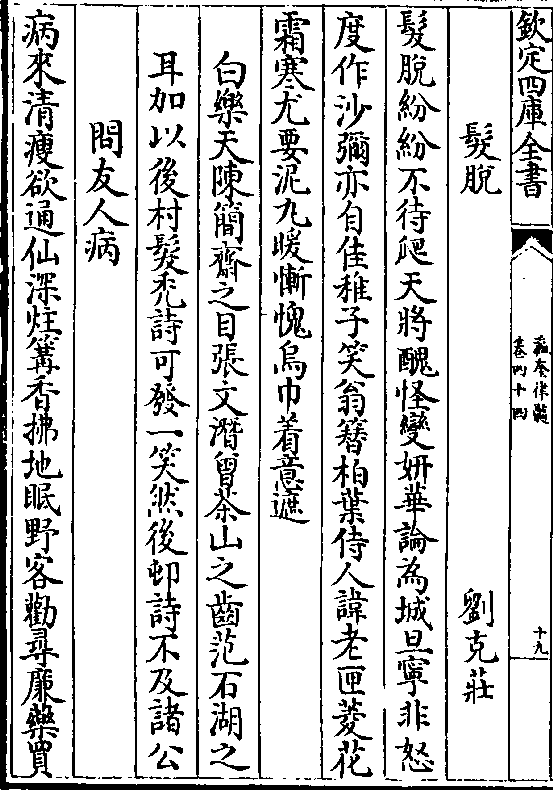 欽定四庫全書
瀛奎律髓
卷四十四
十九
髮脫 劉克莊
髮脫紛紛不待爬天將醜怪變妍華論為城旦寧非怒
度作沙彌亦自佳稚子笑翁簪柏葉侍人諱老匣菱花
霜寒尤要泥丸暖慚愧烏巾着意遮
白樂天陳簡齋之目張文潛曾茶山之齒范石湖之
耳加以後村髮禿詩可發一笑然後邨詩不及諸公
問友人病
病來清瘦欲通仙深炷篝香拂地眠野客勸尋廉藥買